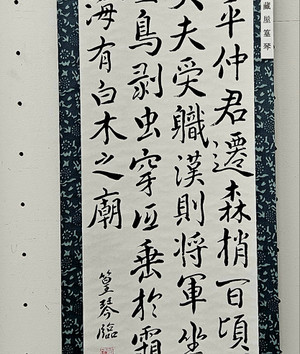 藏屋篁琴
平仲君遷森梢百頃
夫受職漢則將軍坐
鳥剥虫穿低垂於霜
海有白木之廟
篁琴臨